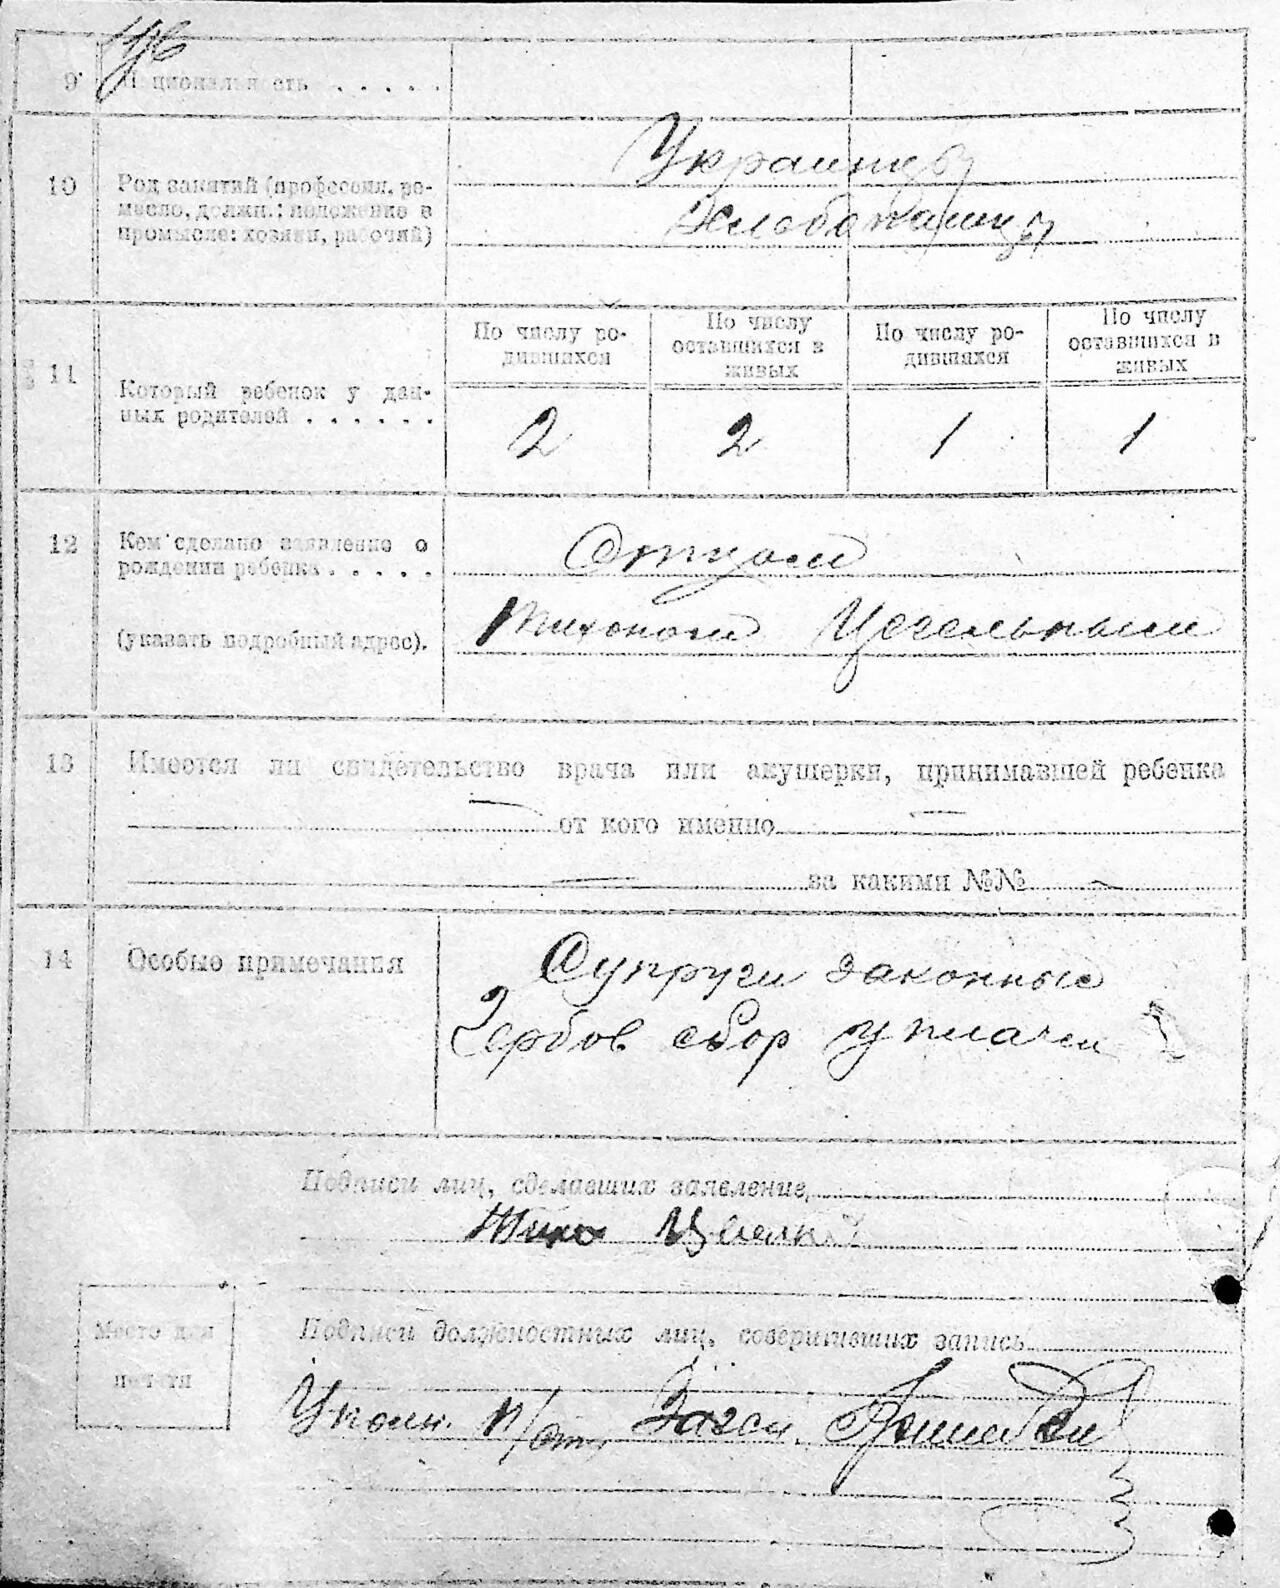 9 Национальность . . . . .
10 Род занятий (профессия, ре-
месло, должн.; положение в
промысле: хозяин, рабочий)
Украинцы
Хлебопашцы
11 Который ребенок у дан-
ных родителей . . . . . .
По числу ро-
дившихся
По числу
оставшихся в
живых
По числу ро-
дившихся
По числу
оставшихся в
живых
2 2 1 1
12 Кем сделано заявление о
рождении ребенка . . . . .
(указать подробный адрес).
Отцом
Тихоном Цегельным
13 Имеется ли свидетельство врача или акушерки, принимавшей ребенка
— от кого именно —
— за какими №№ —
14 Особые примечания
Супруги законные
Гербов сбор уплачен
Подписи лиц, сделавших заявление,
Тихон
Место для
печати
Подписи должностных лиц, совершивших запись
Уполн. п/от. Загса